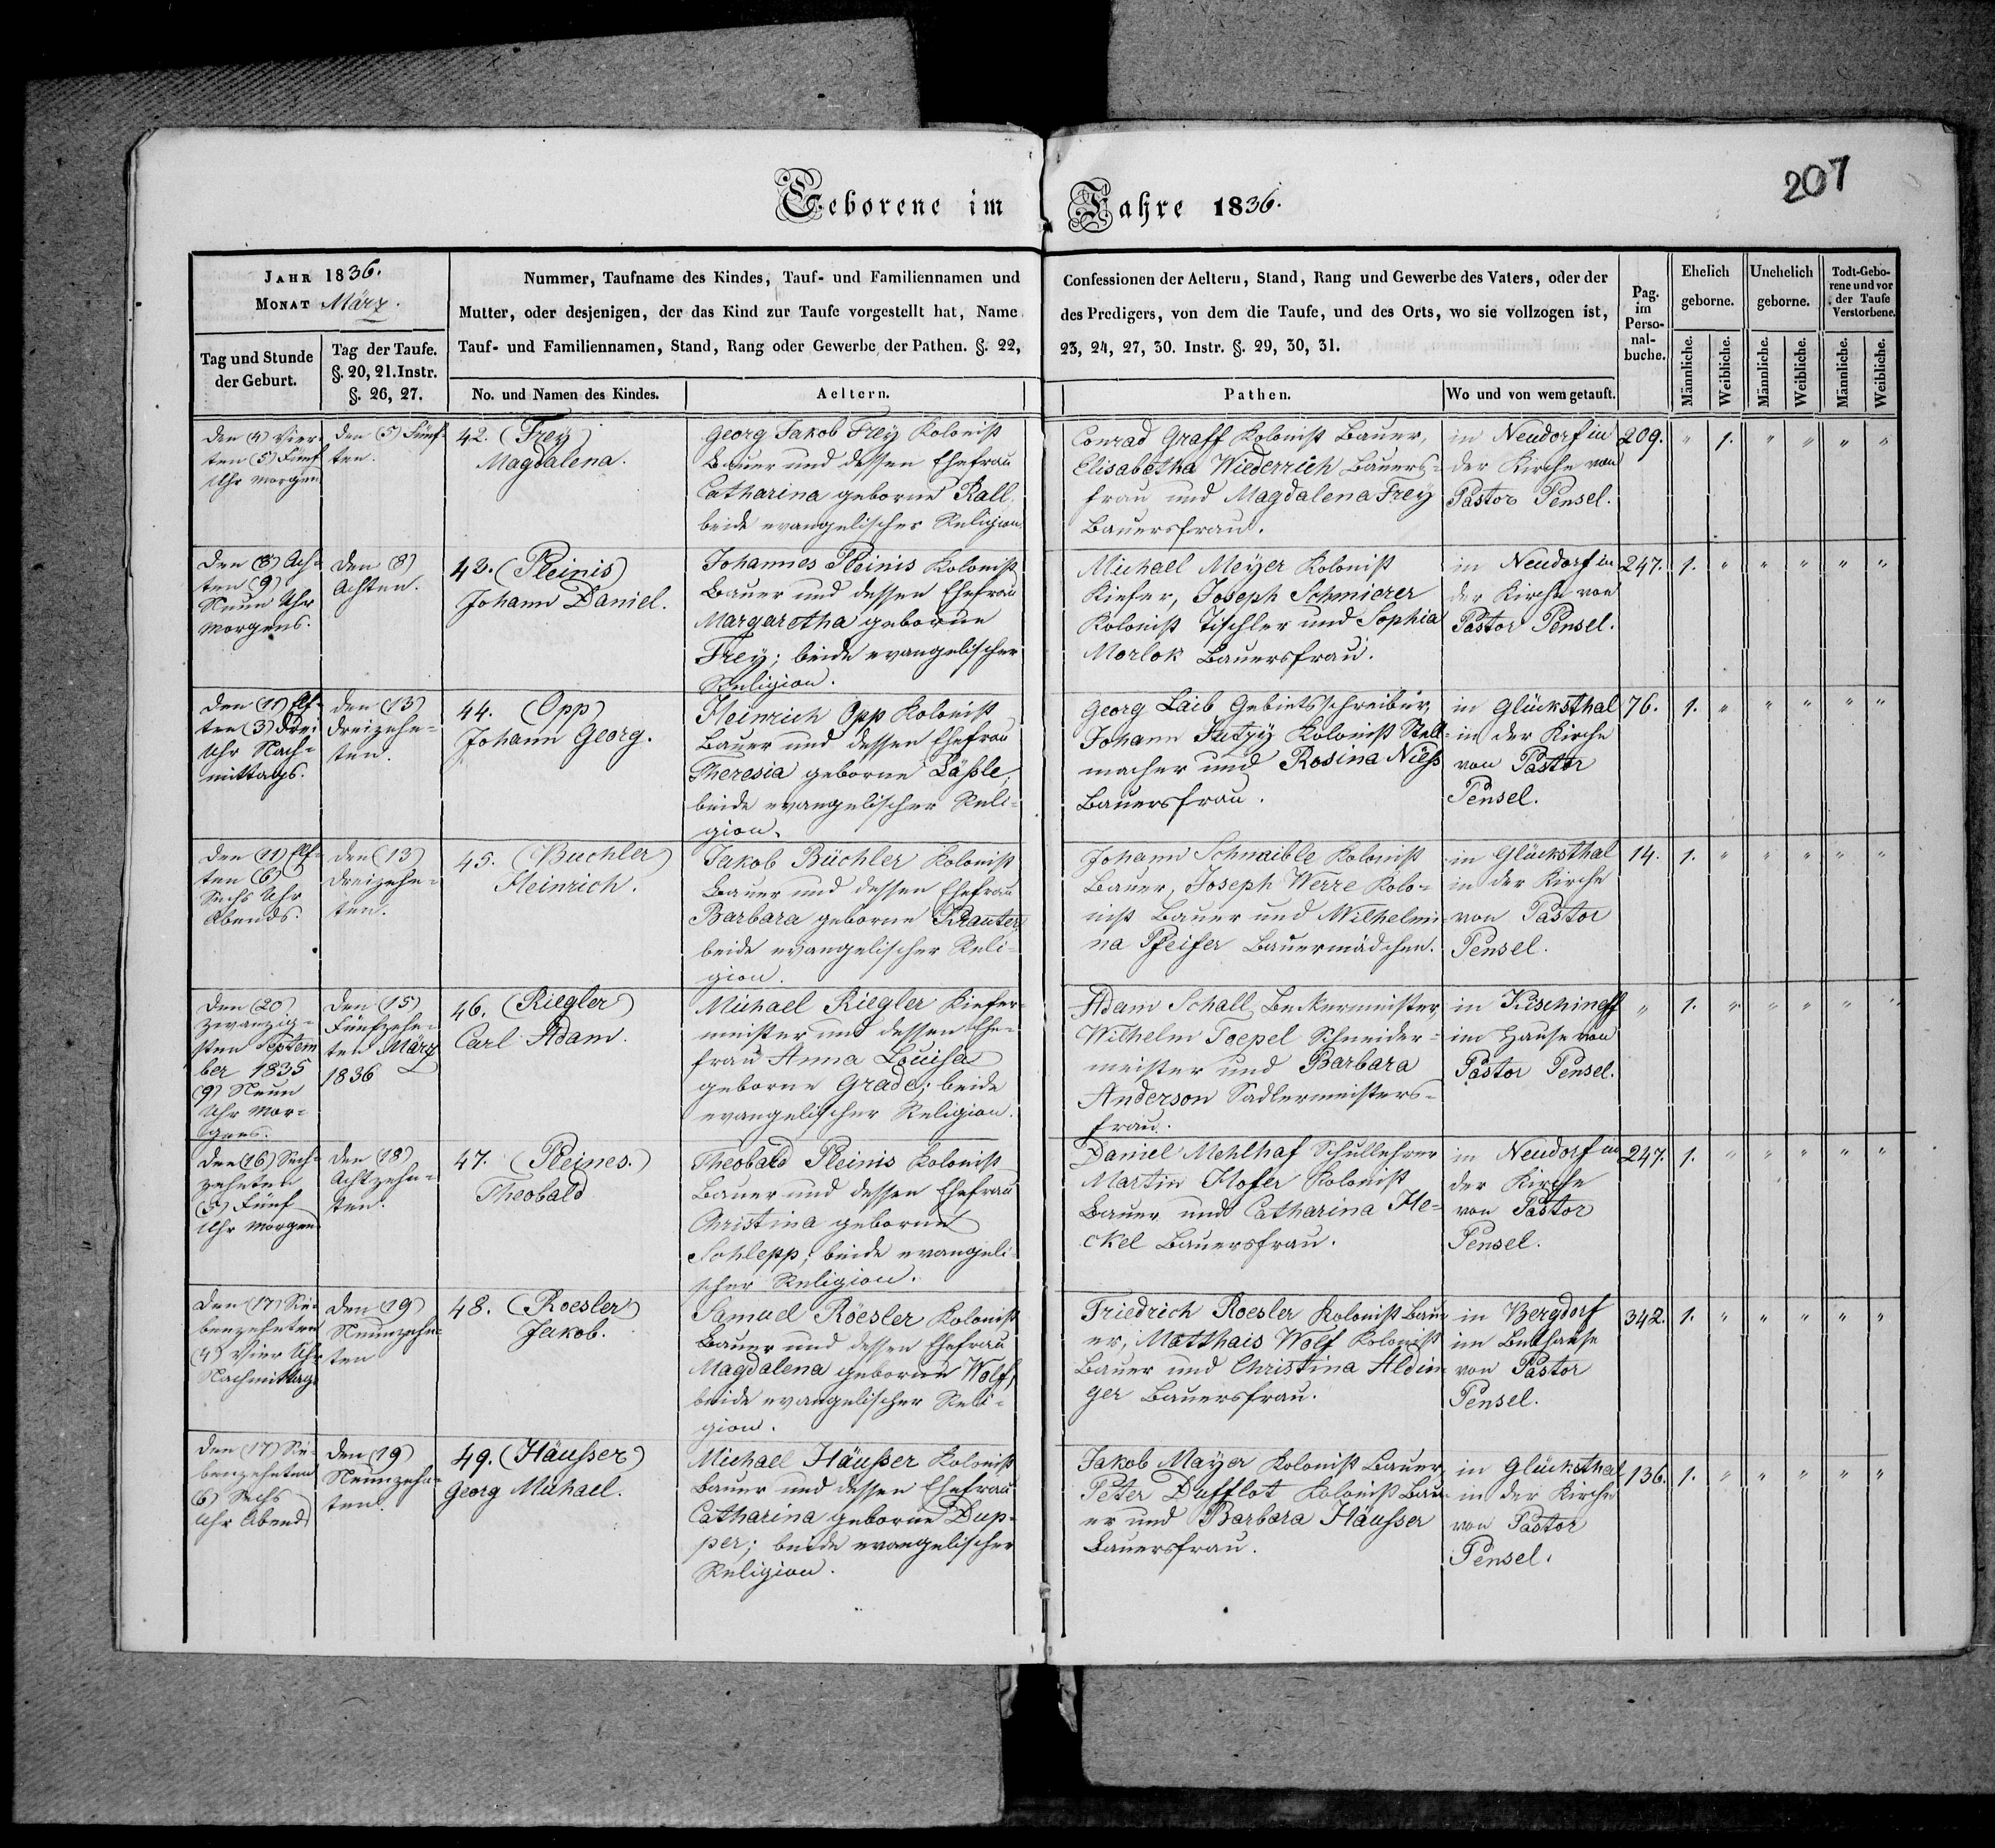 207
Geborene im Jahre 1836.
JAHR 1836.
MONAT März.
Tag und Stunde
der Geburt.
Tag der Taufe.
§. 20, 21. Instr.
§. 26, 27.
Nummer, Taufname des Kindes, Tauf- und Familiennamen und
Mutter, oder desjenigen, der das Kind zur Taufe vorgestellt hat, Name
Tauf- und Familiennamen, Stand, Rang oder Gewerbe der Pathen. §. 22,
No. und Namen des Kindes.
Aeltern.
Confessionen der Aeltern, Stand, Rang und Gewerbe des Vaters, oder der
des Predigers, von dem die Taufe, und des Orts, wo sie vollzogen ist,
23, 24, 27, 30. Instr. §. 29, 30, 31.
Pathen.
Wo und von wem getauft.
Pag.
im
Perso-
nal-
buche.
Ehelich
geborne.
Unehelich
geborne.
Todt-Gebo-
rene und vor
der Taufe
Verstorbene.
Männliche.
Weibliche.
Männliche.
Weibliche.
Männliche.
Weibliche.
Den (4) Vier-
ten (5) Fünf
Uhr Morgen
Den (5) Fünf-
ten.
42. (Frey)
Magdalena.
Georg Jakob Frey Kolonist
Bauer und dessen Ehefrau
Catharina geborne Rall.
beide evangelischer Religion.
Conrad Graff Kolonist Bauer,
Elisabetha Wiederrich Bauers-
frau und Magdalena Frey
Bauersfrau.
in Neudorf in
der Kirche von
Pastor Pensel.
209. " 1. " " " "
Den (8) Ach-
ten (9)
Neun Uhr
Morgens.
Den (8)
Achten.
43. (Pleinis)
Johann Daniel.
Johannes Pleinis Kolonist
Bauer und dessen Ehefrau
Margaretha geborne
Frey; beide evangelischer
Religion.
Michael Meyer Kolonist
Kiefer, Joseph Schmierer
Kolonist Tischler und Sophia
Morlok Bauersfrau.
in Neudorf in
der Kirche von
Pastor Pensel.
247. 1. " " " " "
Den (11) Elf-
ten (3) Drei
Uhr Nach-
mittags.
Den (13)
Dreizehn-
ten.
44. (Opp)
Johann Georg.
Heinrich Opp Kolonist
Bauer und dessen Ehefrau
Theresia geborne Läßle,
beide evangelischer Reli-
gion.
Georg Laib Gebietsschreiber,
Johann Jutzÿ Kolonist Stell-
macher und Rosina Nieß
Bauersfrau.
in Glücksthal
in der Kirche
von Pastor
Pensel.
76. 1. " " " " "
Den (11) Elf-
ten (6)
Sechs Uhr
Abends.
Den (13)
Dreizehn-
ten.
45. (Buchler)
Heinrich.
Jakob Büchler Kolonist
Bauer und dessen Ehefrau
Barbara geborne Krauter,
beide evangelischer Reli-
gion.
Johann Schnaible Kolonist
Bauer, Joseph Werre Kolo-
nist Bauer und Wilhelmi-
na Pfeifer Bauermädchen.
in Glücksthal
in der Kirche
von Pastor
Pensel.
14. 1. " " " " "
Den (20)
Zwanzig-
sten Septem
ber 1835
(9) Neun
Uhr Mor-
gens.
Den (15)
Fünfzehn-
ten März
1836
46. (Riegler)
Carl Adam.
Michael Riegler Kiefer-
meister und dessen Ehe-
frau Anna Louisa
geborne Grade; beide
evangelischer Religion.
Adam Schall, Beckermeister,
Wilhelm Toepel Schneider-
meister und Barbara
Anderson Sadlermeisters-
frau.
in Kischineff
im Hause von
Pastor Pensel.
" 1. " " " " "
Den (16) Sech-
zehnten
(5) Fünf
Uhr Morgen
Den (18)
Achtzehn-
ten.
47. (Pleines.)
Theobald
Theobald Pleinis Kolonist
Bauer und dessen Ehefrau
Christina geborne
Schlepp; beide evangeli-
scher Religion.
Daniel Mehlhaf Schullehrer
Martin Hofer Kolonist
Bauer und Catharina He-
ckel Bauersfrau.
in Neudorf in
der Kirche
von Pastor
Pensel.
247. 1. " " " " "
Den (17) Sie-
benzehnten
(4) Vier Uhr
Nachmittag
Den (19)
Neunzehn-
ten
48. (Roesler)
Jakob.
Samuel Röesler Kolonist
Bauer und dessen Ehefrau
Magdalena geborne Wolf,
beide evangelischer Reli-
gion.
Friedrich Roesler Kolonist Bau-
er, Matthais Wolf Kolonist
Bauer und Christina Aldin-
ger Bauersfrau.
in Bergdorf
im Bethause
von Pastor
Pensel.
342. 1. " " " " "
Den (17) Sie-
benzehnten
(6) Sechs
Uhr Abend
Den (19)
Neunzehn-
ten.
49. (Häußer)
Georg Michael.
Michael Häußer Kolonist
Bauer und dessen Ehefrau
Catharina geborne Dup-
per; beide evangelischer
Religion.
Jakob Mayer Kolonist Bauer,
Peter Dufflot Kolonist Bau-
er und Barbara Häußer
Bauersfrau.
in Glücksthal
in der Kirche
von Pastor
Pensel.
136. 1. " " " " "